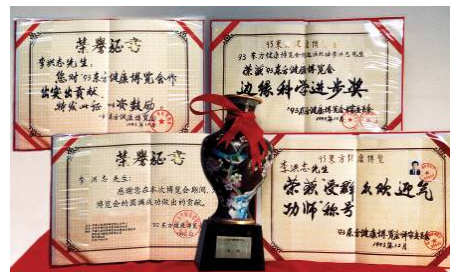 荣誉证书
李洪志先生:
您对'93东方健康博览会作
出突出贡献,
特发此证 以资鼓励
'93东方健康博览会
1993年12月
'93东方健康博览会
荣获'93东方健康博览会
边缘科学进步奖
'93东方健康博览会评审委员会
1993年12月
荣誉证书
李洪志 先生:
感谢您在本次博览会期间,
博览会的圆满成功做出的贡献。
'93东方健康博览会
'93东方健康博览
李洪志先生
荣获受群众欢迎气
功师称号
'93东方健康博览会评审委员会
1993年12月